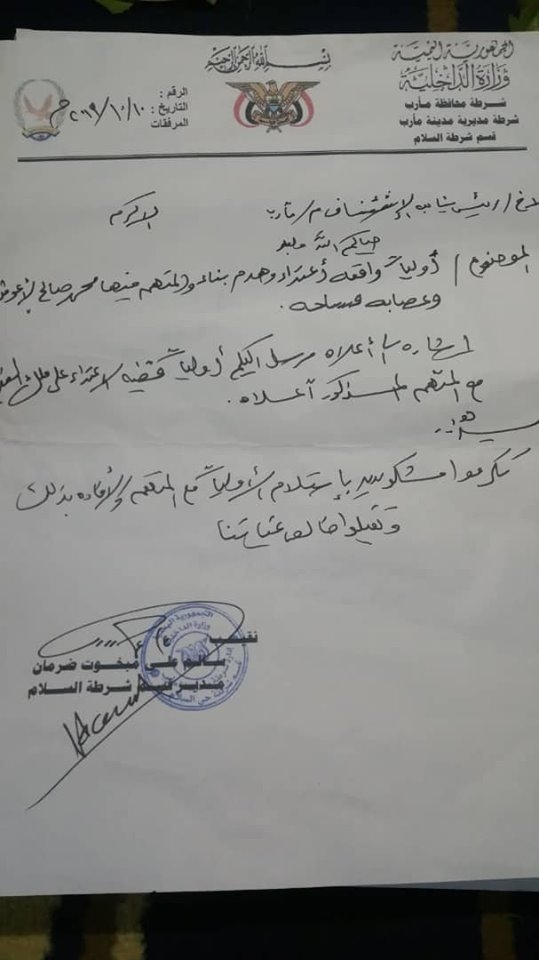 بسم الله الرحمن الرحيم
الجمهورية اليمنية
وزارة الداخلية
شرطة محافظة مأرب
شرطة مديرية مدينة مأرب
قسم شرطة السلام
الرقم :
التاريخ : ٢٠١٩/١٠/١٠م
المرفقات :
الأخ / رئيس نيابة الإستئناف م/ مأرب الاكرم
حياكم الله وبعد
الموضوع / أوليات واقعه أعتداء وهدم بناء والمتهم فيها محمد صالح
وعصابه مسلحه .
إشاره الى أعلاه مرسل اليكم أوليات قضيه الاعتداء على ملك
مع المتهم المذكور أعلاه .
تكرموا مشكورين بإستلام الأوليات مع المتهم والأفاده بذلك
وتقبلوا خالص تحياتنا
نقيب
سالم علي مبخوت ضرمان
مدير قسم شرطة السلام